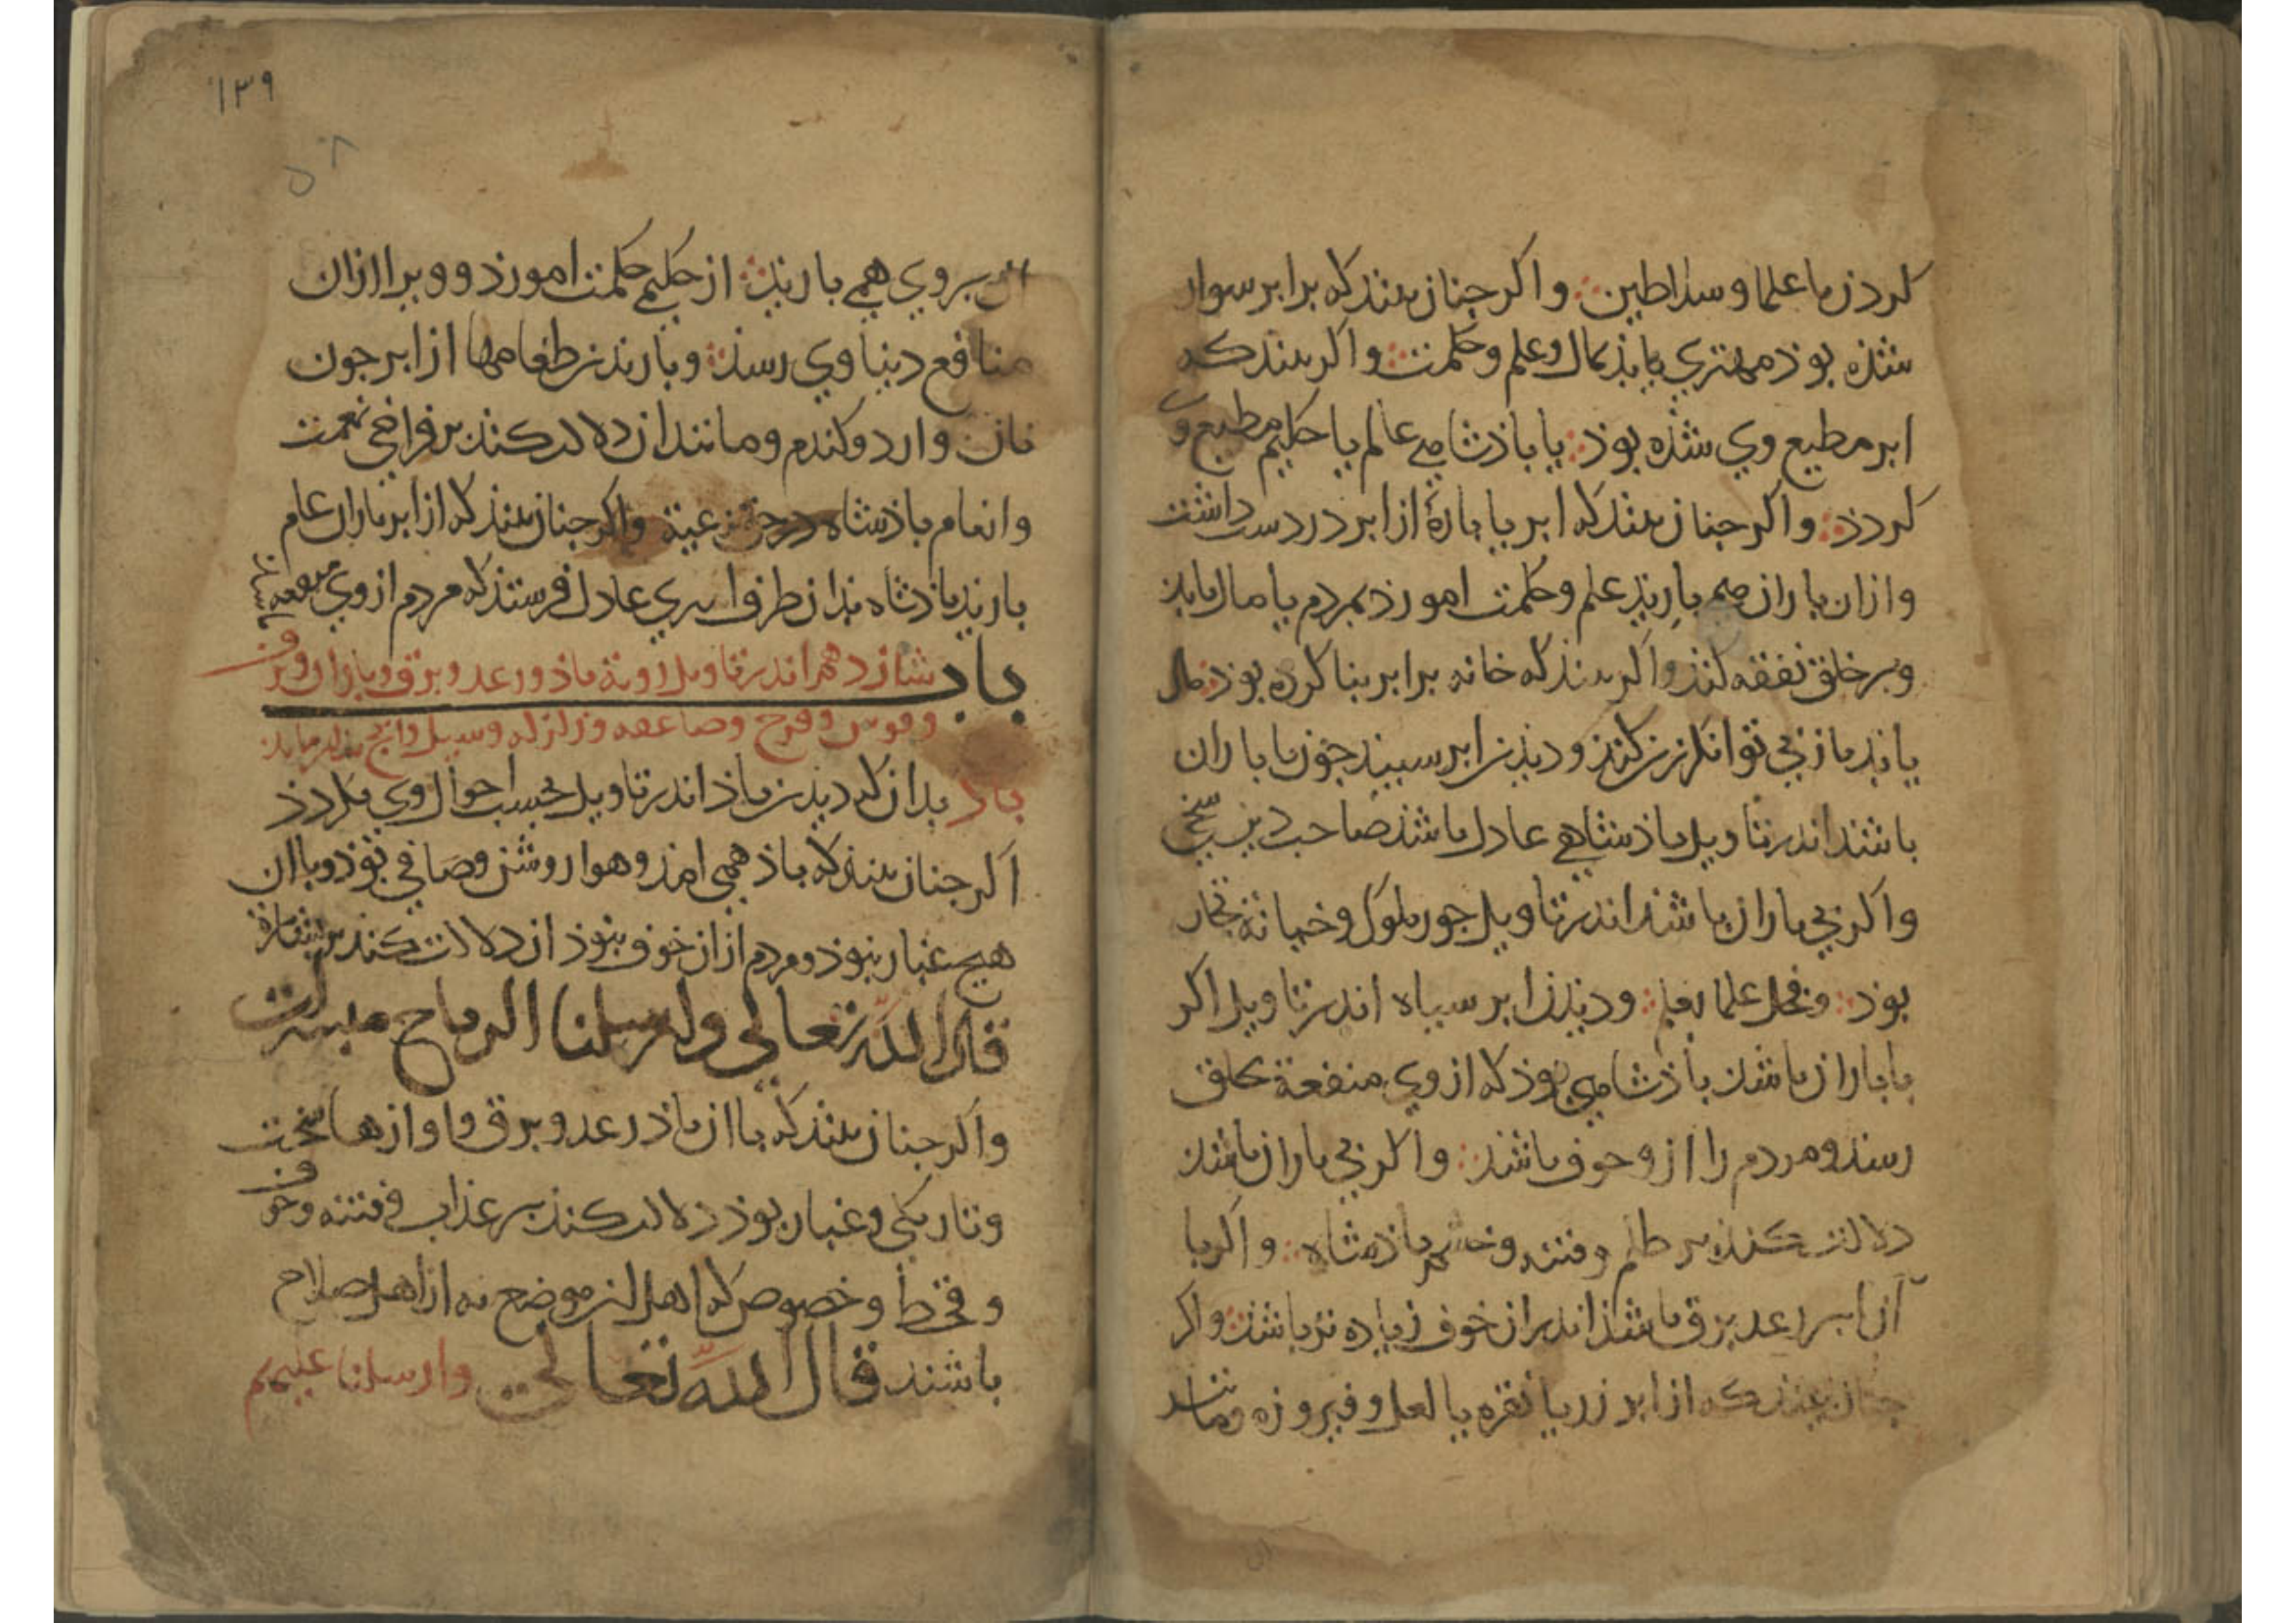 کردذ با علما و سلاطین؞ و اکر جنان بیند که برابر سوار
شذه بوذ مهتری یابذ بمال و علم و حکمت؞ و اکر بیند که
ابر مطیع وی شذه بوذ؞ با باذشاهی عالم یا حکیم مطیع وی
کردذ؞ و اکر جنان بیند که ابر یا بارۀ از ابر در دست داشت
و ازان باران همی باریذ علم و حکمت اموزد بمردم یا مال یابذ
و بر خلق نفقه کنذ و اکر بیند که خانه بر ابر بنا کرده بوذ؞ مال
یابذ با زنی توانکر بزنی کنذ و دیذن ابر سبید جون با باران
باشد اندر تاویل باذشاهی عادل باشذ صاحب دین سخی
و اکر بی باران باشد اندر تاویل جور ملوک و خیانة تجار
بوذ؞ و بخل علما بعلم؞ و دیذن ابر سیاه اندر تاویل اکر
با باران باشذ باذشاهی بوذ که از وی منفعة بخلق
رسذ و مردم را از و خوف باشذ؞ و اکر بی باران باشذ
دلالت کنذ بر ظلم و فتنه و خشم باذشاه؞ و اکر با
آن ابر رعد و برق باشذ اندران خوف زیاده تر باشذ؞ و اکر
جنان بیند که از ابر زر یا نقره یا لعل و فیروزه و مانند
۱۳۹
۵۸
ان بر وی همی باریذ؞ از حکیمی حکمت اموزد و ویرا ازان
منافع دنیاوی رسذ؞ و باریدن طعامها از ابر جون
نان و ارد و کندم و مانند ان دلالت کنذ بر فراخی نعمت
و انعام باذشاه در حق رعیة و اکر جنان بیند که از ابر باران عام
باریذ باذشاه بذان طرف امیری عادل فرستذ که مردم از وی منفعه
باب شازدهم اندر تاویل رویة باذ و رعد و برق و باران و برف
و قوس و قزح و صاعقه و زلزله و سیل و انج
باد بدان که دیذن باذ اندر تاویل بحسب احوال وی بکردذ
اکر جنان بیند که باذ همی امذ و هوا روشن و صافی بوذ و با ان
هیج غبار نبوذ و مردم از ان خوف نبوذ ان دلالت کند بر بشارة
قال الله تعالی وارسلنا الریاح مبشرات
و اکر جنان بیند که با ان باذ رعد و برق و اوازها سخت
و تاریکی و غبار بوذ دلالت کنذ بر عذاب و فتنه و خوف
و قحط و خصوص که اهل ان موضع نه از اهل صلاح
باشند قال الله تعالی وارسلنا علیهم